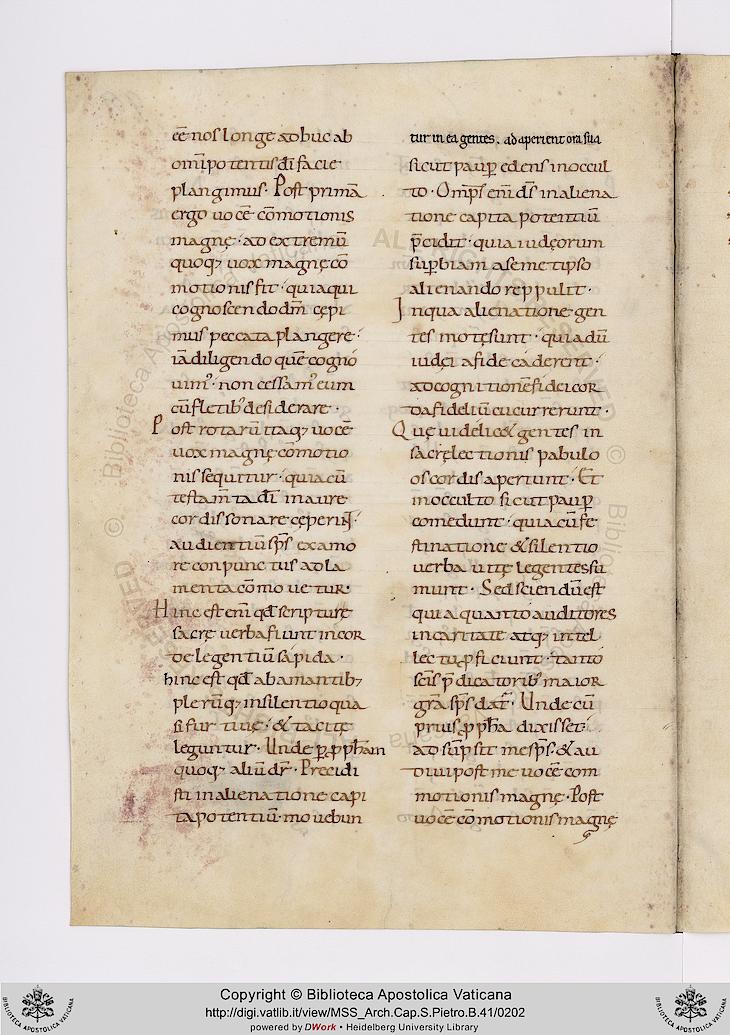 eē nos longe adhuc ab
omīpotentis dī facie
plangimus · Post primā
ergo uocē cōmotionis
magnę · ad extremū
quoq; uox magnę cō
motionis fit · quia qui
cognoscendo dm̄ cępi
mus peccata plangere ·
iā diligendo quē cogno
uim' · non cessam' eum
cū fletib' desiderare ·
Post rotarū itaq; uocē
uox magnę cōmotio
nis sequitur · quia cū
testam̄ta dī in aure
cordis sonare cęperin̄t ·
audientiū sps̄ ex amo
re conpunctus ad la
menta cōmouetur ·
Hinc est enī qd̄ scripturę
sacrę uerba fiunt in cor
de legentiū sapida ·
hinc est qd̄ ab amantib;
plerūq; in silentio qua
si furtiue · & tacite
leguntur · Unde p̱ p̱ph̄am
quoq; aliū dr̄ · Precidi
sti in alienatione capi
ta potentiū · mouebun
tur in ea gentes . adaperient ora sua
sicut paup̱ edens in occul
to · Omp̄s enī ds̄ in aliena
tione capita potentiū
p̄cidit · quia iudęorum
sup̱biam a semetipso
alienando reppulit ·
In qua alienatione gen
tes motę sunt · quia dū
iudęi a fide caderent ·
ad cognitionē fidei cor
da fideliū cucurrerunt ·
Quę uidelic& gentes in
sacrę lectionis pabulo
os cordis aperiunt · Et
in occulto sicut paup̱
comedunt · quia cū fe
stinatione & silentio
uerba uitę legentes su
munt · Sed sciendū est
quia quanto auditores
in caritate atq; intel
lectu p̱ficiunt · tanto
scīs p̄dicatorib' maior
gr̄a sps̄ dat̄ · Unde cū
prius p̱ph̄a dixisset ·
adsūpsit me sps̄ · & au
diui post me uocē com
motionis magnę · Post
uocē cōmotionis magnę
Copyright © Biblioteca Apostolica Vaticana
http://digi.vatlib.it/view/MSS_Arch.Cap.S.Pietro.B.41/0202
powered by DWork • Heidelberg University Library